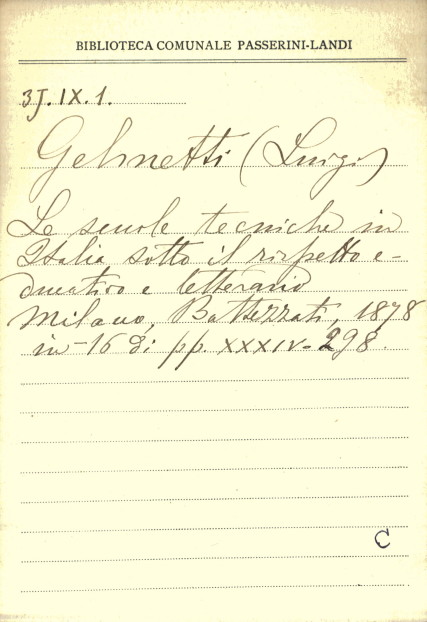 BIBLIOTECA COMUNALE PASSERINI-LANDI
3J.IX.1.
Gelmetti (Luigi)
Le scuole tecniche in
Italia sotto il rispetto e-
ducativo e letterario
Milano, Battezzati, 1878
in-16 di pp. XXXIV-298.
C